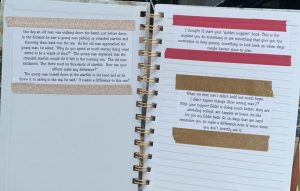 One day an old man was walking down the beach just before dawn.
In the distance he saw a young man picking up stranded starfish and
throwing them back into the sea. As the old man approached the
young man, he asked, "Why do you spend so much energy doing what
seems to be a waste of time?" The young man explained that the
stranded starfish would die if left in the morning sun. The old man
exclaimed, "But there must be thousands of starfish. How can your
efforts make any difference?"
The young man looked down at the starfish in his hand and as he
threw it to safety in the sea he said, "It makes a difference to this one!"
I thought I'd start your "golden nuggets" book. This is for
anytime you do something or see something that gives you the
motivation to keep going, something to look back on when days
might
When we first met I didn't hold out much hope.
I didn't expect change. How wrong was I?
doing much better, they are
attending college, are happier at home. So like
days that are hard
remember you do make a difference even if some times
you don't directly see it.